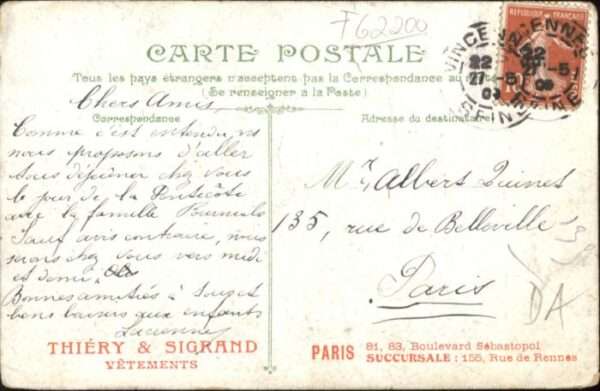 F62200
CARTE POSTALE
Tous les pays étrangers n'acceptent pas la Correspondance au
(Se renseigner à la Poste)
Correspondance
Adresse du destinataire
Chers Amis
Comme c'est entendu, ns
nous proposons d'aller
tous déjeuner chez vous
le jour de la Pentecôte
avec la famille
Sauf avis contraire, nous
serons chez vous vers midi
et demi.
Bonnes amitiés à
bons baisers aux enfants
Lucienne
Mr Albert Quinet
135, rue de Belleville
Paris
DA
VINCENNES
22
27-5
SEINE
RÉPUBLIQUE FRANÇAISE
10
THIÉRY & SIGRAND
VÊTEMENTS
PARIS 81, 83, Boulevard Sébastopol
SUCCURSALE : 155, Rue de Rennes